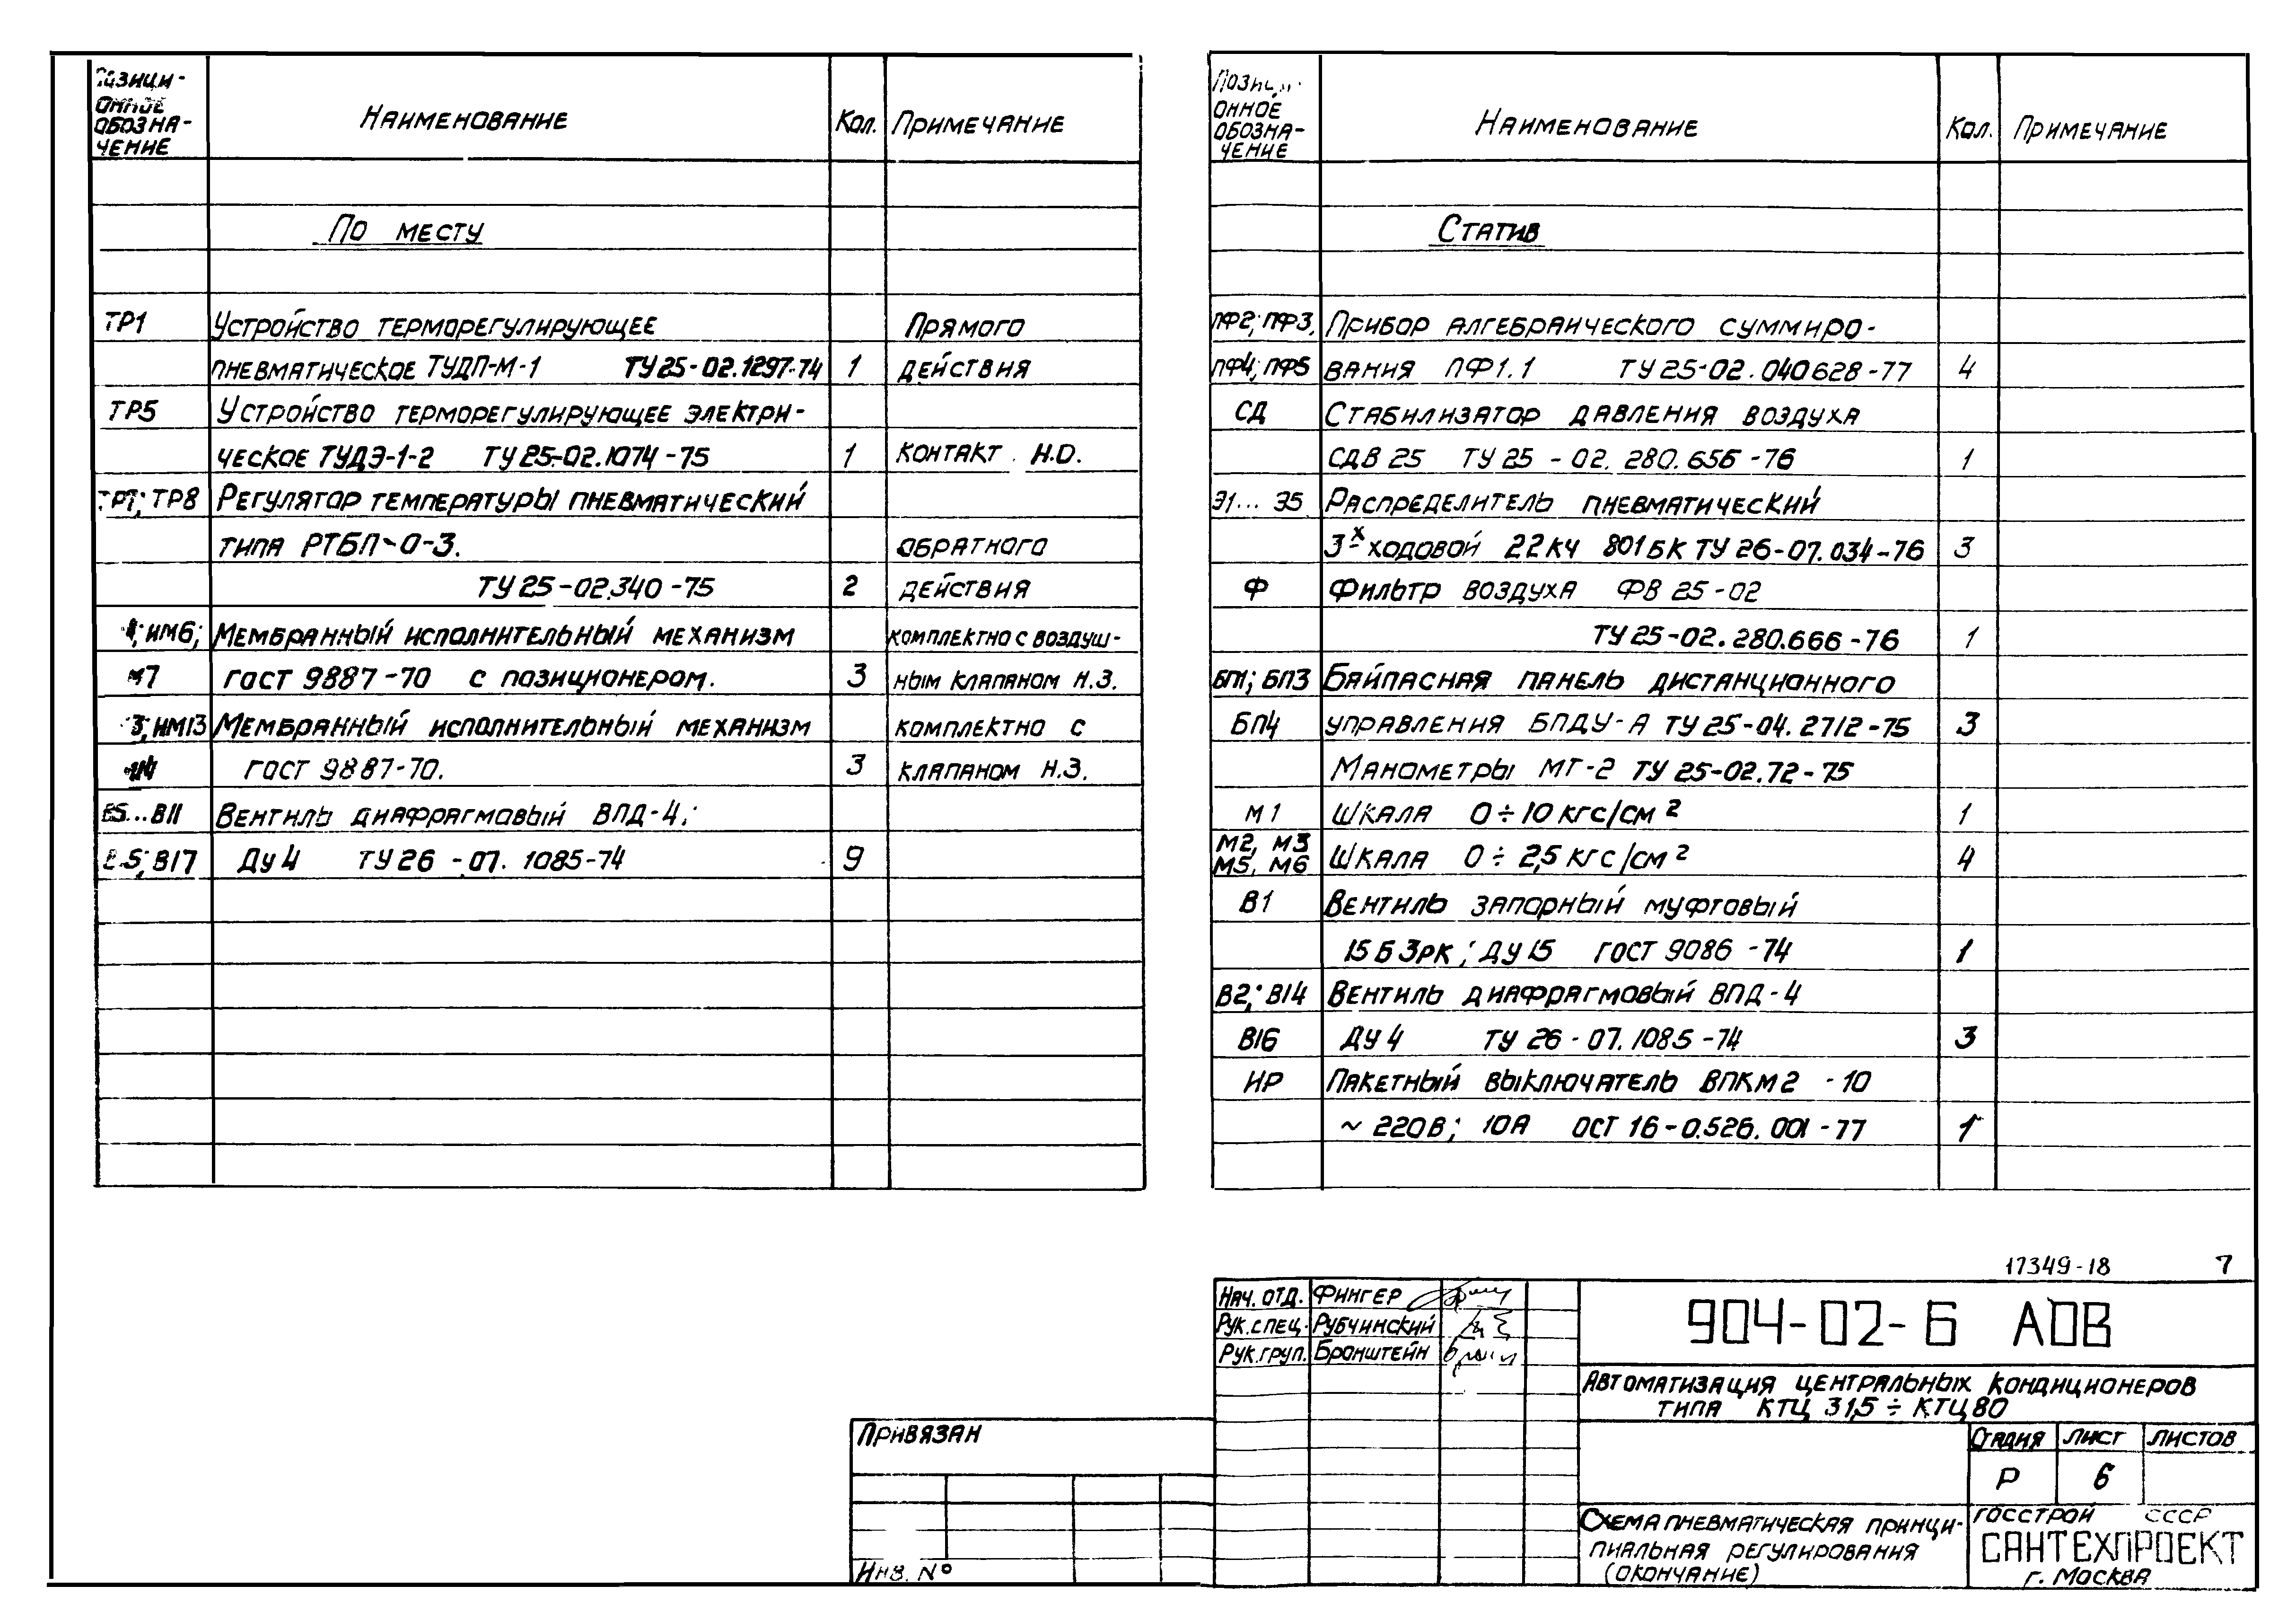 Позици-
онное
обозна-
чение
Наименование
Кол.
Примечание
По месту
ТР1 Устройство терморегулирующее Прямого
пневматическое ТУДП-М-1 ТУ 25-02.1297-74 1 действия
ТР5 Устройство терморегулирующее электри-
ческое ТУДЭ-1-2 ТУ 25-02.1074-75 1 контакт Н.О.
ТР7; ТР8 Регулятор температуры пневматический
типа РТБП-О-3. обратного
ТУ 25-02.340-75 2 действия
ИМ6; Мембранный исполнительный механизм комплектно с воздуш-
М7 ГОСТ 9887-70 с позиционером. 3 ным клапаном Н.З.
3; ИМ13 Мембранный исполнительный механизм комплектно с
ГОСТ 9887-70. 3 клапаном Н.З.
В5...В11 Вентиль диафрагмовый ВПД-4;
5; В17 Ду 4 ТУ 26-07.1085-74 9
Позици-
онное
обозна-
чение
Наименование
Кол.
Примечание
Статив
ПФ2; ПФ3, Прибор алгебраического суммиро-
ПФ4; ПФ5 вания ПФ1.1 ТУ 25-02.040628-77 4
СД Стабилизатор давления воздуха
СДВ 25 ТУ 25-02.280.656-76 1
Э1...Э5 Распределитель пневматический
3х ходовой 22кч 801бк ТУ 26-07.034-76 3
Ф Фильтр воздуха ФВ 25-02
ТУ 25-02.280.666-76 1
БП1; БП3 Байпасная панель дистанционного
БП4 управления БПДУ-А ТУ 25-04.2712-75 3
Манометры МТ-2 ТУ 25-02.72-75
М1 Шкала 0÷10 кгс/см² 1
М2, М3
М5, М6 Шкала 0÷2,5 кгс/см² 4
В1 Вентиль запорный муфтовый
15Б3рк; Ду 15 ГОСТ 9086-74 1
В2; В14 Вентиль диафрагмовый ВПД-4
В16 Ду 4 ТУ 26-07.1085-74 3
ИР Пакетный выключатель ВПКМ2-10
~220В; 10А ОСТ 16-0.526.001-77 1
17349-18 7
Нач. отд. Фингер
Рук. спец. Рубчинский
Рук. груп. Бронштейн
904-02-6 АОВ
Автоматизация центральных кондиционеров
типа КТЦ 31,5÷КТЦ 80
Привязан
Инв. №
Стадия Лист Листов
Р 6
Схема пневматическая принци-
пиальная регулирования
(окончание)
Госстрой СССР
САНТЕХПРОЕКТ
г. Москва